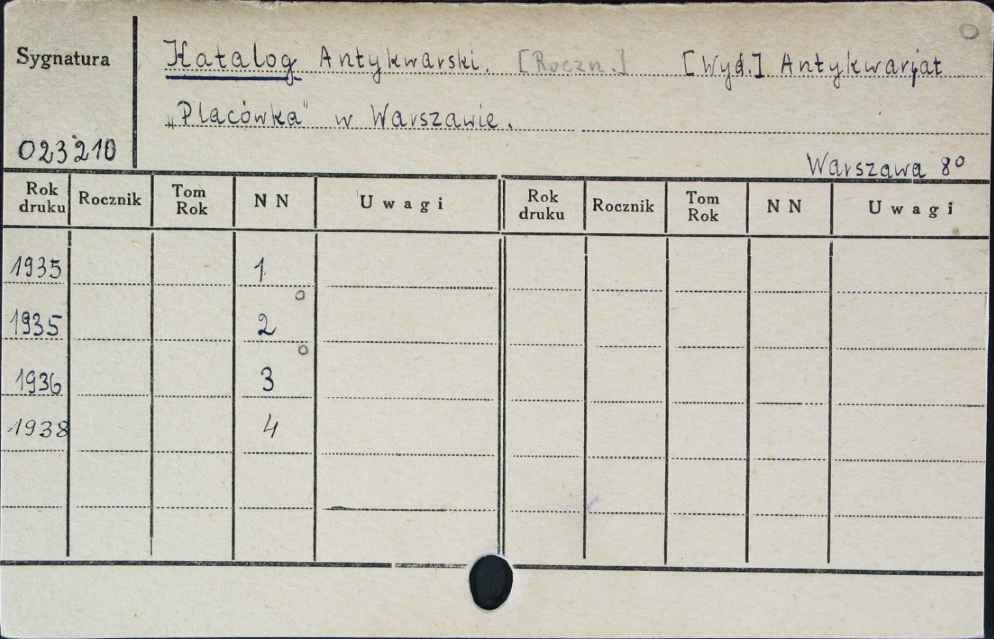 Sygnatura
Katalog Antykwarski. [Roczn.] [Wyd.] Antykwarjat
„Placówka" w Warszawie.
023210
Warszawa 8º
Rok druku Rocznik Tom Rok NN Uwagi Rok druku Rocznik Tom Rok NN Uwagi
1935 1
1935 2
1936 3
1938 4